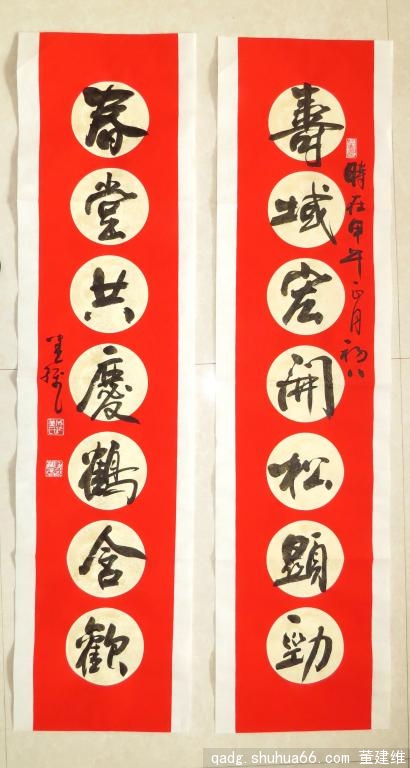 時在甲午正月初八
壽域宏開松顯勁
春堂共慶鶴含歡
qadg.shuhua66.com 董建维